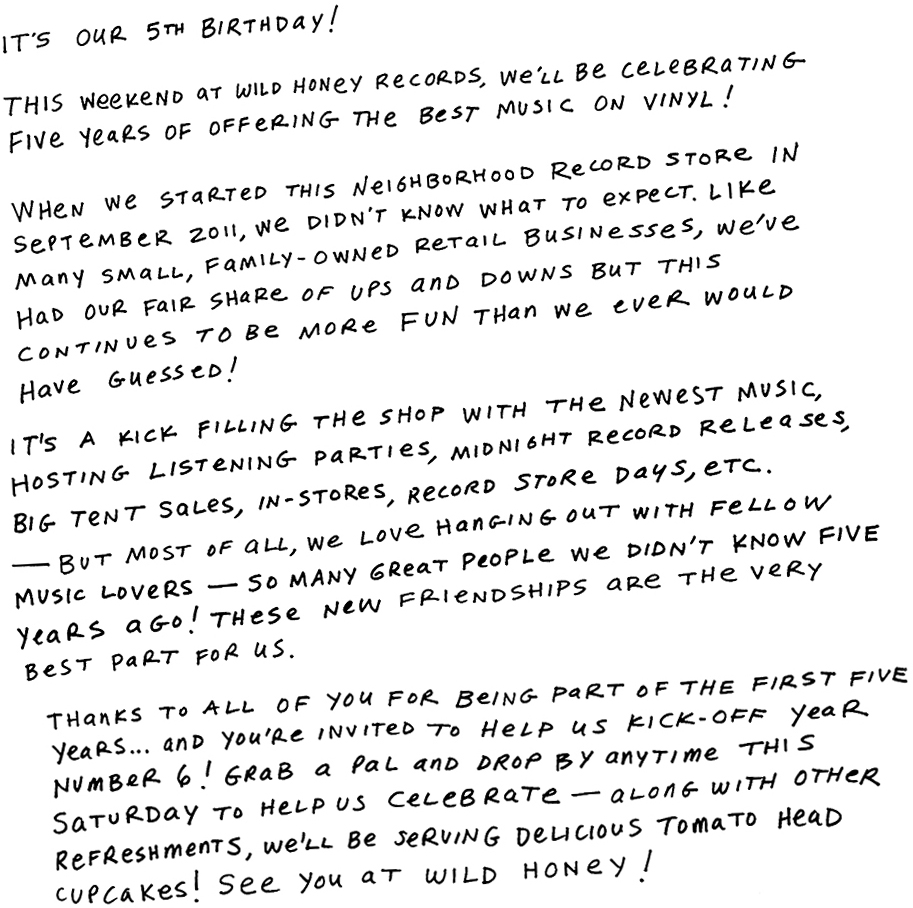 IT'S OUR 5TH BIRTHDAY!
THIS WEEKEND AT WILD HONEY RECORDS, WE'LL BE CELEBRATING
FIVE YEARS OF OFFERING THE BEST MUSIC ON VINYL!
WHEN WE STARTED THIS NEIGHBORHOOD RECORD STORE IN
SEPTEMBER 2011, WE DIDN'T KNOW WHAT TO EXPECT. LIKE
MANY SMALL, FAMILY-OWNED RETAIL BUSINESSES, WE'VE
HAD OUR FAIR SHARE OF UPS AND DOWNS BUT THIS
CONTINUES TO BE MORE FUN THAN WE EVER WOULD
HAVE GUESSED!
IT'S A KICK FILLING THE SHOP WITH THE NEWEST MUSIC,
HOSTING LISTENING PARTIES, MIDNIGHT RECORD RELEASES,
BIG TENT SALES, IN-STORES, RECORD STORE DAYS, ETC.
— BUT MOST OF ALL, WE LOVE HANGING OUT WITH FELLOW
MUSIC LOVERS — SO MANY GREAT PEOPLE WE DIDN'T KNOW FIVE
YEARS AGO! THESE NEW FRIENDSHIPS ARE THE VERY
BEST PART FOR US.
THANKS TO ALL OF YOU FOR BEING PART OF THE FIRST FIVE
YEARS... AND YOU'RE INVITED TO HELP US KICK-OFF YEAR
NUMBER 6! GRAB A PAL AND DROP BY ANYTIME THIS
SATURDAY TO HELP US CELEBRATE — ALONG WITH OTHER
REFRESHMENTS, WE'LL BE SERVING DELICIOUS TOMATO HEAD
CUPCAKES! SEE YOU AT WILD HONEY!